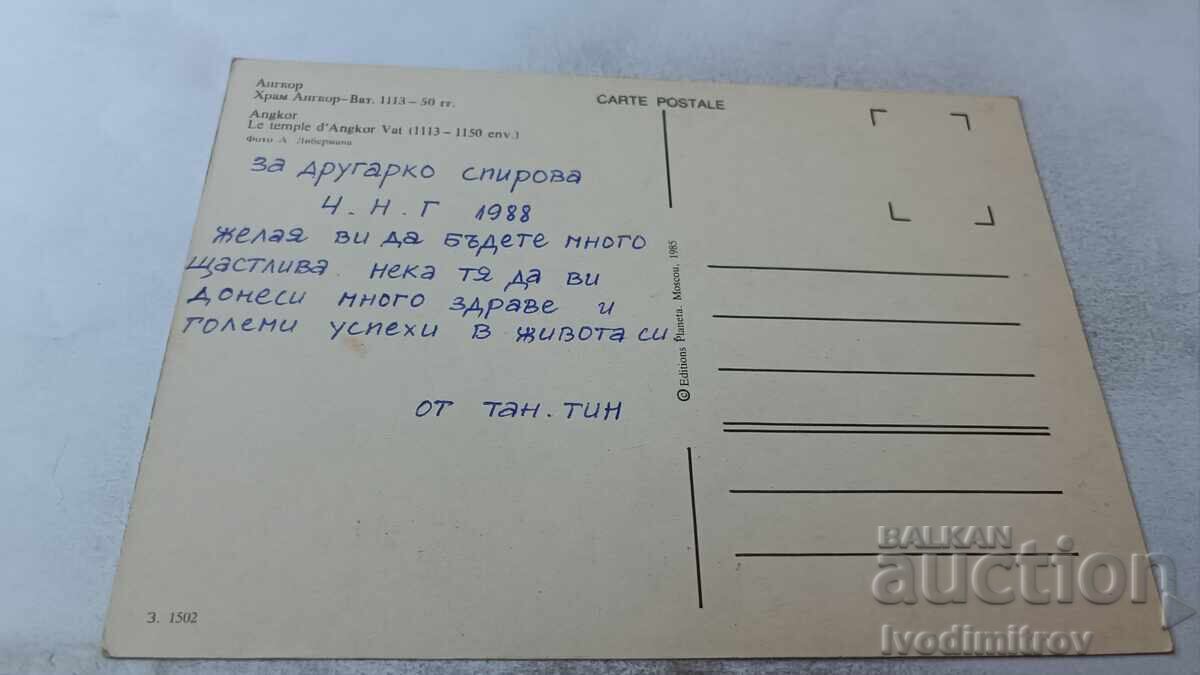 Ангкор
Храм Ангкор-Ват. 1113-50 гг.
Angkor
Le temple d'Angkor Vat (1113-1150 env.)
Фото А. Либермана
за другарко спирова
Ч. Н. Г 1988
желая ви да бъдете много
щастлива. нека тя да ви
донеси много здраве и
големи успехи в живота си
от тан. тин
З. 1502
CARTE POSTALE
© Editions Planeta. Moscou, 1985
BALKAN
auction
Ivodimitrov